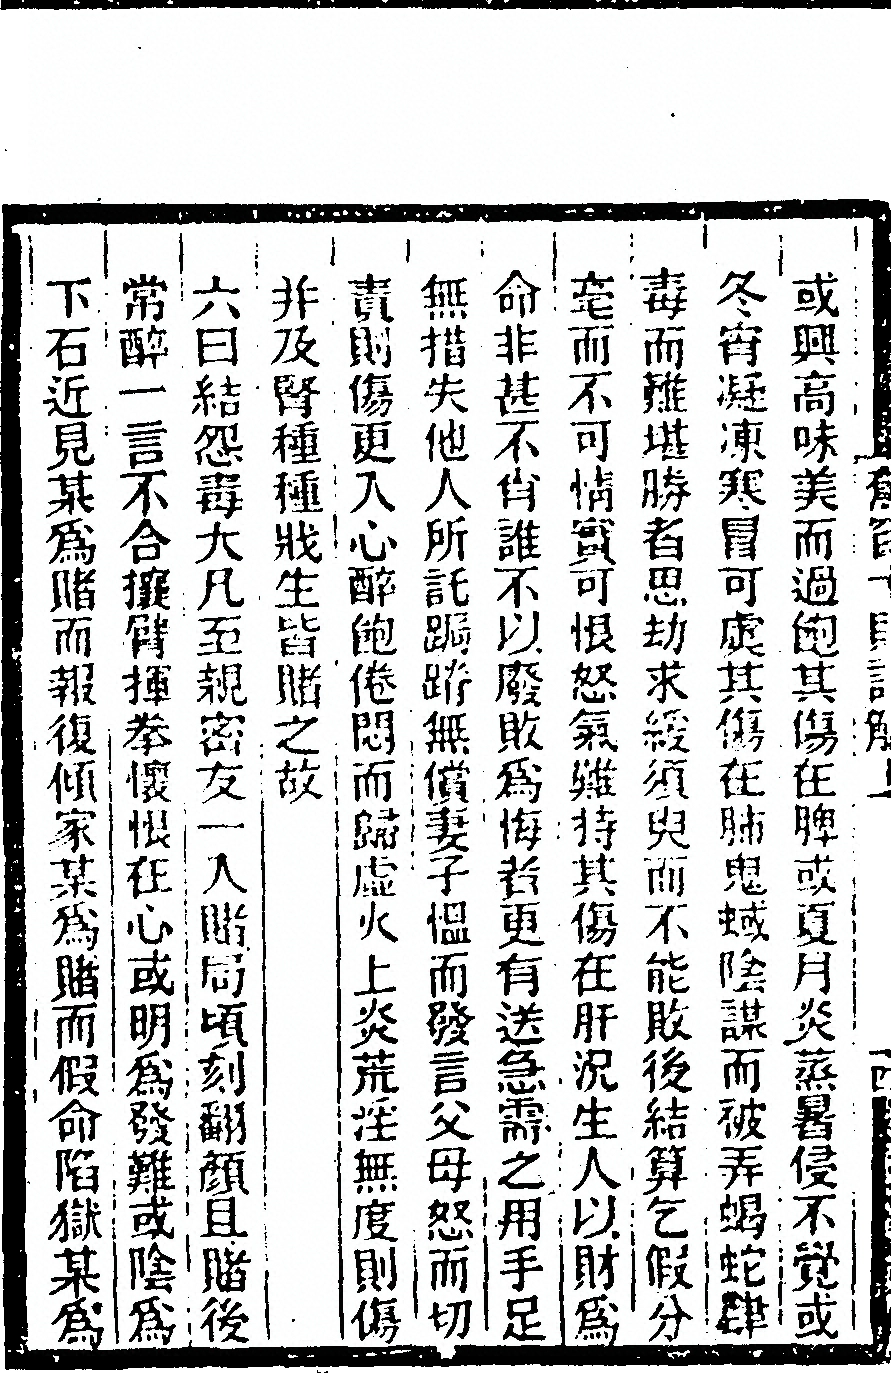 或興高味美而過飽其傷在脾或夏月炎蒸暑侵不覺或
冬宵凝凍寒冒可處其傷在肺鬼蜮陰謀而被弄蝎蛇肆
毒而難堪勝者思劫求緩須臾而不能敗後結算乞假分
毫而不可情實可恨怒氣難持其傷在肝況生人以財為
命非甚不肖誰不以廢敗為悔者更有送急需之用手足
無措失他人所託跼蹐無償妻子慍而發言父母怒而切
責則傷更入心醉飽倦悶而歸虛火上炎荒淫無度則傷
并及腎種種戕生皆賭之故
六曰結怨毒大凡至親密友一入賭局頃刻翻顏且賭後
常醉一言不合攘臂揮拳懷恨在心或明為發難或陰為
下石近見某為賭而報復傾家某為賭而假命陷獄某為